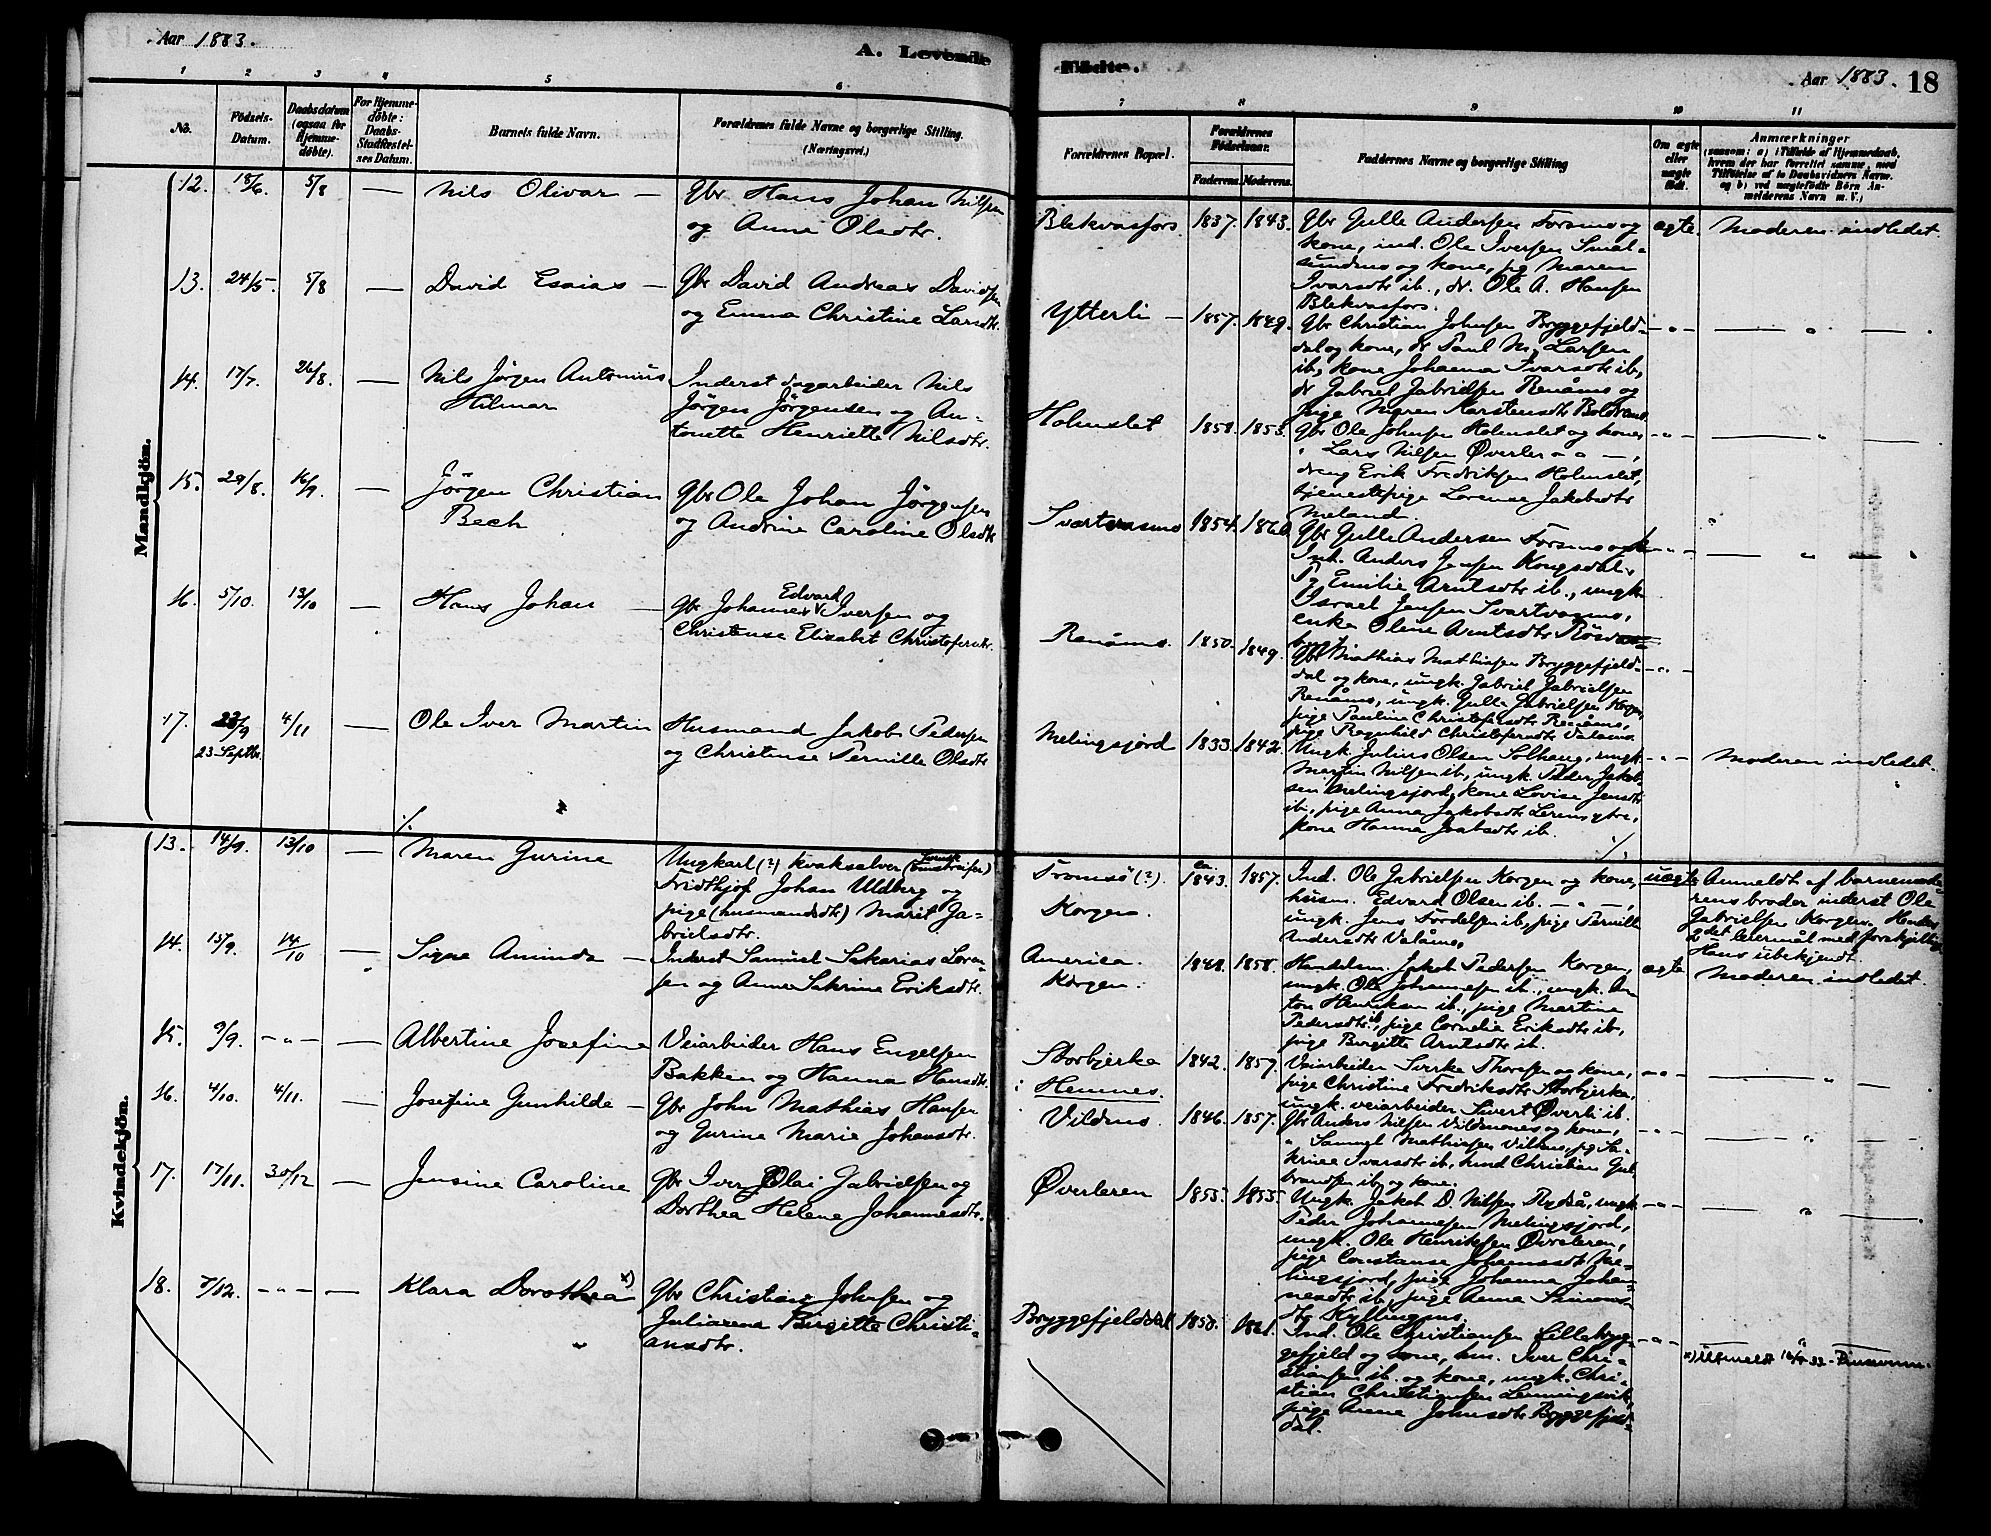 Aar 1883.
A. Levende
Fødte.
Aar 1883. 18
1 2 3 4 5 6
7 8 9 10 11
No.
Fødsels-
Datum.
Daabsdatum
(ogsaa for
Hjemme-
døbte).
For Hjemme-
døbte:
Daabs-
Stadfæstel-
ses Datum.
Barnets fulde Navn.
Forældrenes fulde Navne og borgerlige Stilling.
(Næringsvei.)
Forældrenes Bopæl.
Forældrenes
Fødselsaar.
Faderens. Moderens.
Faddernes Navne og borgerlige Stilling
Om ægte
eller
uægte
født.
Anmærkninger
(saasom: a) i Tilfælde af Hjemmedaab,
hvem der har forrettet samme, med
Tilføielse af to Daabsvidners Navne.
og b) ved uægtefødte Børn An-
melderens Navn m. V.)
Mandkjön.
12. 18/6. 5/8 — Nils Olivar — Gbr Hans Johan Nilsen
og Anne Olsdtr.
Blekvasfors. 1837. 1843. Gbr Gulle Andersen Forsmo og ægte. Moderen indledet.
kone, ind. Ole Iversen Smal-
sundmo og kone, pg Maren
Ivarsdtr ib., dr. Ole A. Hansen
Blekvasfors.
13. 24/5. 5/8 — David Esaias — Gbr David Andreas Davidsen
og Emma Christine Larsdtr.
Ytterli — 1857. 1849. Gbr Christian Johnsen Bryggefjeld- — " —
dal og kone, dr Paul M. Larsen
ib, kone Johanna Ivarsdtr ib,
dr Gabriel Gabrielsen Renåmo og
pige Maren Karstensdtr
14. 17/7. 26/8. — Nils Jörgen Antonius
Hilmar
Inderst dagarbeider Nils
Jörgen Jörgensen og An-
tonette Henriette Nilsdtr.
Holmslet 1858. 1853. Gbr Ole Johnsen Holmslet og kone, — " —
" Lars Nilsen Øverler — " —,
dreng Erik Fredriksen Holmslet,
tjenestepige Lorense Jakobsdtr
Meland.
15. 29/8. 16/9. — Jörgen Christian
Bech
Gbr Ole Johan Jörgensen
og Andrine Caroline Olsdtr
1854. 1860. Gbr Gulle Andersen Forsmo og k — " —
Inh. Anders Jensen Kongsdal.
Pg Emilie Arntsdtr ib., ungk.
Israel Jensen Svartvasmo,
enke Oline Arntsdtr
16. 5/10. 13/10 — Hans Johan — Gbr Johannes Edvard Iversen og
Christense Elisabet Christofersdtr.
Renåmo. 1850. 1849. Gbr Mathias Mathisen Bryggefjeld- — " —
dal og kone, ungk. Gabriel Gabrielsen
Renåmo, ungk. Gulle Gabrielsen Korgen,
pige Pauline Christofersdtr Renåmo,
pige Ragnhild Christofersdtr Valåmo
17. 23/9 4/11 — Ole Iver Martin
23. Septbr.
Husmand Jakob Pedersen
og Christense Pernille Olsdtr
Melingsjord 1833. 1842. Ungk. Julius Olsen Solhaug, ungk. — " — Moderen indledet.
Martin Nilsen ib, ungk. Peder Jakob-
sen Melingsjord, kone Lovise Jensdtr
ib., pige Anna Jakobsdtr
kone Hanna ib.
./.
Kvindekjön.
13. 14/9. 13/10 — Maren Gurine
Ungkarl (?) kvaksalver
Fridthjof Johan Uldberg og
pige (husmandsdtr) Marit Ga-
brielsdtr.
Tromsö (?). ca. 1843. 1857. Ind. Ole Gabrielsen Korgen og kone, uægte Anmeldt af barnemode-
Korgen. husm. Edvard Olsen ib. — " —, rens broder inderst Ole
ungk. Jens Tordelsen ib, pige Pernille Gabrielsen Korgen.
Andersdtr Valåmo. leiermål med forskjellige
Hans ubekjendt.
14. 15/9. 14/10 — Signe Aminda — Inderst Samuel Sakarias Loren-
sen og Anne Sakrine Eriksdtr.
America. 1848. 1858. Handelsm. Jakob Pedersen Korgen, ægte Moderen indledet.
Korgen. ungk. Ole Johannesen ib., ungk. An-
ton Henriksen ib., pige Martine
Pedersdtr ib, pige Cornelia Eriksdtr ib,
pige Birgitte Arntsdtr ib.
15. 9/9. — " — — Albertine Josefine Veiarbeider Hans Engelsen
Bakken og Hanna Hansdtr.
Storbjerka 1842. 1859. Veiarbeider Sirrke Thoresen og kone, — " —
i Hemnes. pige Christine Fredriksdtr Storbjerka,
ungk. veiarbeider Sivert Øverli ib.
16. 4/10. 4/11. — Josefine Gunhilde — Gbr John Mathias Hansen
og Gurine Marie Johansdtr.
Vildmo 1846. 1857. Gbr Anders Nilsen Vildmones og kone, — " —
" Samuel Mathisen Vildmo, pg Sa-
krine Ivarsdtr ib, husmd Christian Gul-
brandsen ib og kone.
17. 17/11. 30/12 — Jensine Caroline Gbr Iver Olai Gabrielsen og
Dorthea Helene Johannesdtr.
Øverleren 1855. 1855. Ungk. Jakob D. Nilsen Rydså, ungk. — " —
Peder Johannesen Melingsjord,
ungk. Ole Henriksen Øverleren,
pige Constanse Johannsdtr Me-
lingsjord, pige Johanna Johan-
nesdtr ib, pige Anna Simons-
dtr Kyllingmo.
18. 7/12. — " — — Klara Dorothea x) Gbr Christian Johnsen og
Julianna Birgitte Christi-
ansdtr.
Bryggefjelddal 1858. 1861. Ind. Ole Christiansen Lillebryg- — " —
gefjeld og kone, hm. Iver Chri-
stiansen ib. og kone, ungk. Chri-
stian Christiansen Lenningsvik,
pige Anne Johnsdtr Bryggefjeld-
dal.
x) Utmeldt